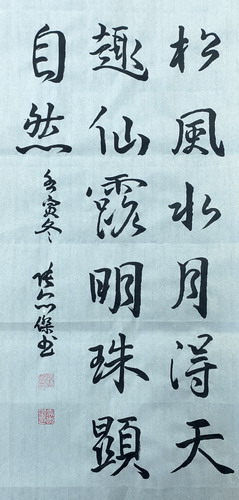 松風水月得天
趣仙露明珠顯
自然
壬寅冬
書